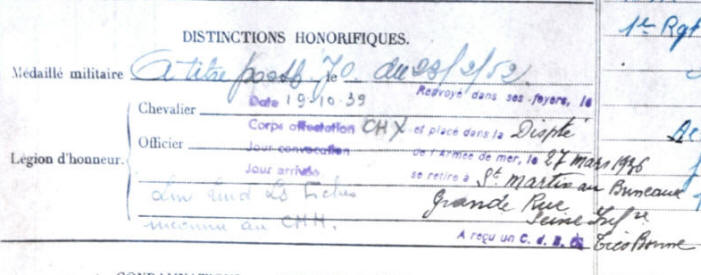 DISTINCTIONS HONORIFIQUES.
1er Rgt
Médaillé militaire A titre posth JO. le du 28/2/52.
Renvoyé dans ses foyers, le
Date 19-10-39
Chevalier
Corps affectation CHX et placé dans la Dispté
Officier
Jour convocation de l'Armée de mer, le 27 mars 1936
Légion d'honneur.
Jour arrivée se retire à St. Martin au Buneaux
Grande Rue
Seine Infre
inconnu au CMH.
A reçu un C. d. B. Très Bonne